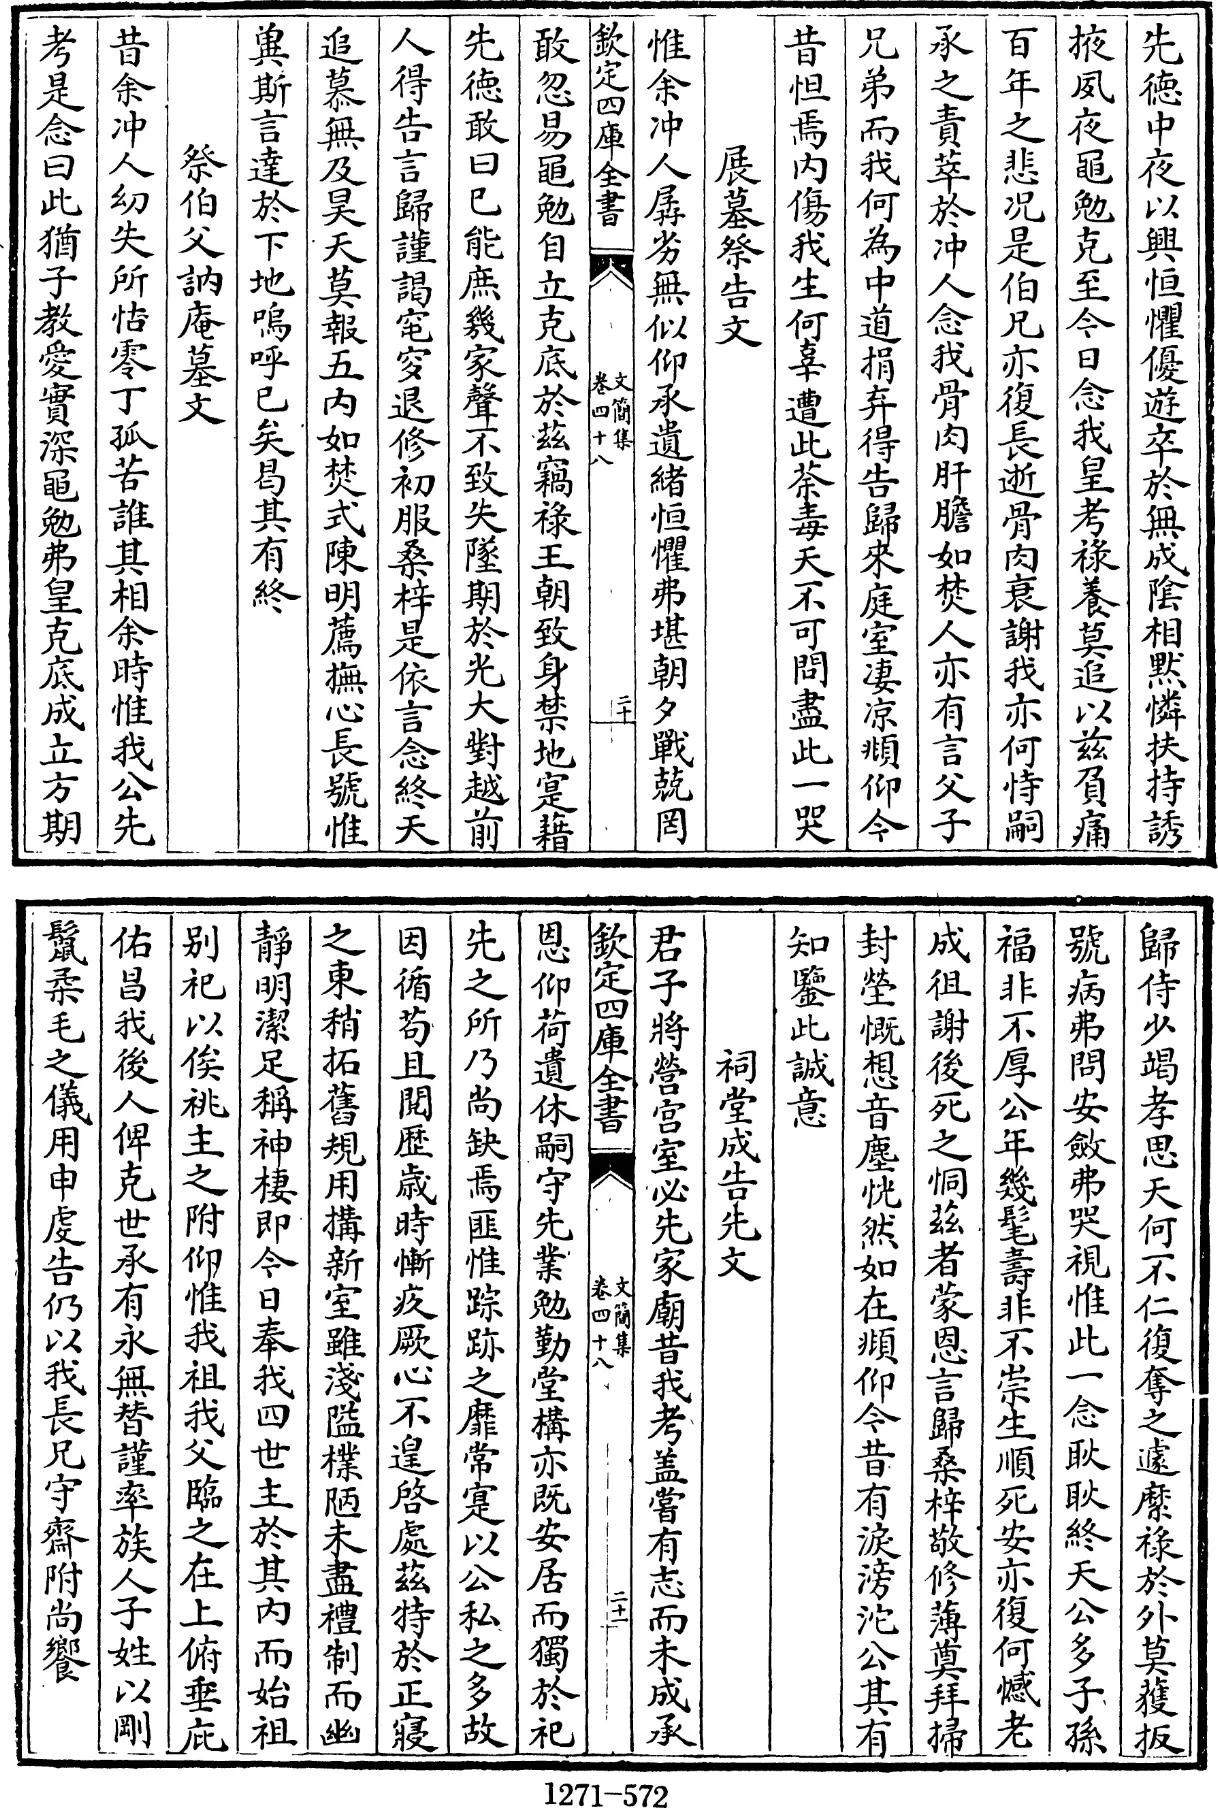 先德中夜以興恒懼優遊卒於無成陰相默憐扶持誘
掖夙夜黽勉克至今日念我皇考祿養莫追以兹負痛
百年之悲况是伯兄亦復長逝骨肉衰謝我亦何恃嗣
承之責萃於冲人念我骨肉肝膽如焚人亦有言父子
兄弟而我何為中道捐弃得告歸來庭室凄凉頫仰今
昔怛焉内傷我生何辜遭此荼毒天不可問盡此一哭
展墓祭告文
惟余冲人孱劣無似仰承遺緒恒懼弗堪朝夕戰兢罔
欽定四庫全書
文簡集
卷四十八
二十
敢忽易黽勉自立克底於兹竊祿王朝致身禁地寔藉
先德敢曰已能庶幾家聲不致失墜期於光大對越前
人得告言歸謹謁窀穸退修初服桑梓是依言念終天
追慕無及昊天莫報五内如焚式陳明薦撫心長號惟
兾斯言達於下地嗚呼已矣曷其有終
祭伯父訥庵墓文
昔余冲人幼失所怙零丁孤苦誰其相余時惟我公先
考是念曰此猶子教愛實深黽勉弗皇克底成立方期
歸侍少竭孝思天何不仁復奪之遽縻祿於外莫獲扳
號病弗問安斂弗哭視惟此一念耿耿終天公多子孫
福非不厚公年幾髦壽非不崇生順死安亦復何憾老
成徂謝後死之恫兹者蒙恩言歸桑梓敬修薄奠拜掃
封塋慨想音塵恍然如在頫仰今昔有淚滂沱公其有
知鑒此誠意
祠堂成告先文
君子將營宮室必先家廟昔我考盖嘗有志而未成承
欽定四庫全書
文簡集
卷四十八
二十一
恩仰荷遺休嗣守先業勉勤堂構亦既安居而獨於祀
先之所乃尚缺焉匪惟踪跡之靡常寔以公私之多故
因循苟且閲歴歳時慚疚厥心不遑啓處兹特於正寢
之東稍拓舊規用搆新室雖淺隘樸陋未盡禮制而幽
靜明潔足稱神棲即今日奉我四世主於其内而始祖
别祀以俟祧主之附仰惟我祖我父臨之在上俯垂庇
佑昌我後人俾克世承有永無替謹率族人子姓以剛
鬛柔毛之儀用申虔告仍以我長兄守齋附尚饗
1271-572